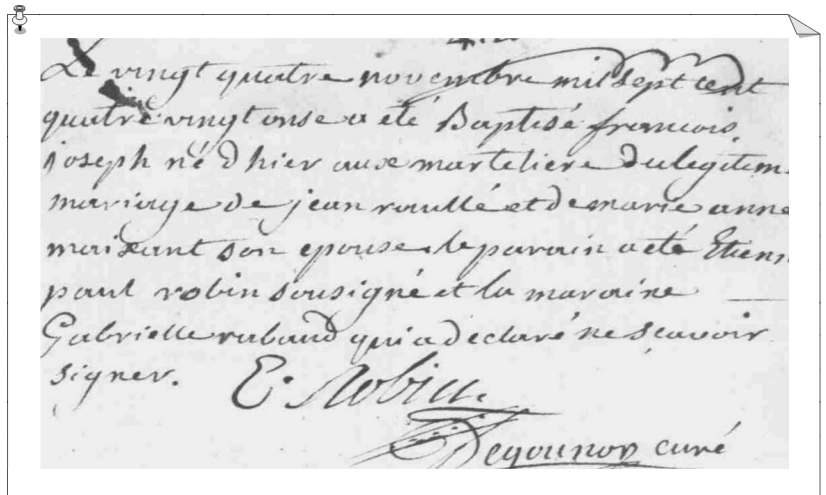 Le vingt quatre novembre mil sept cent
quatre vingt onse a eté Baptisé francois
joseph né d hier aux marteliere du legitim
mariage de jean raullé et de marie anne
maixant son epouse. le parain a eté Etien
paul robin sousigné et la maraine
Gabrielle rabaud qui a declaré ne scavoir
signer.
E. Robin.
curé